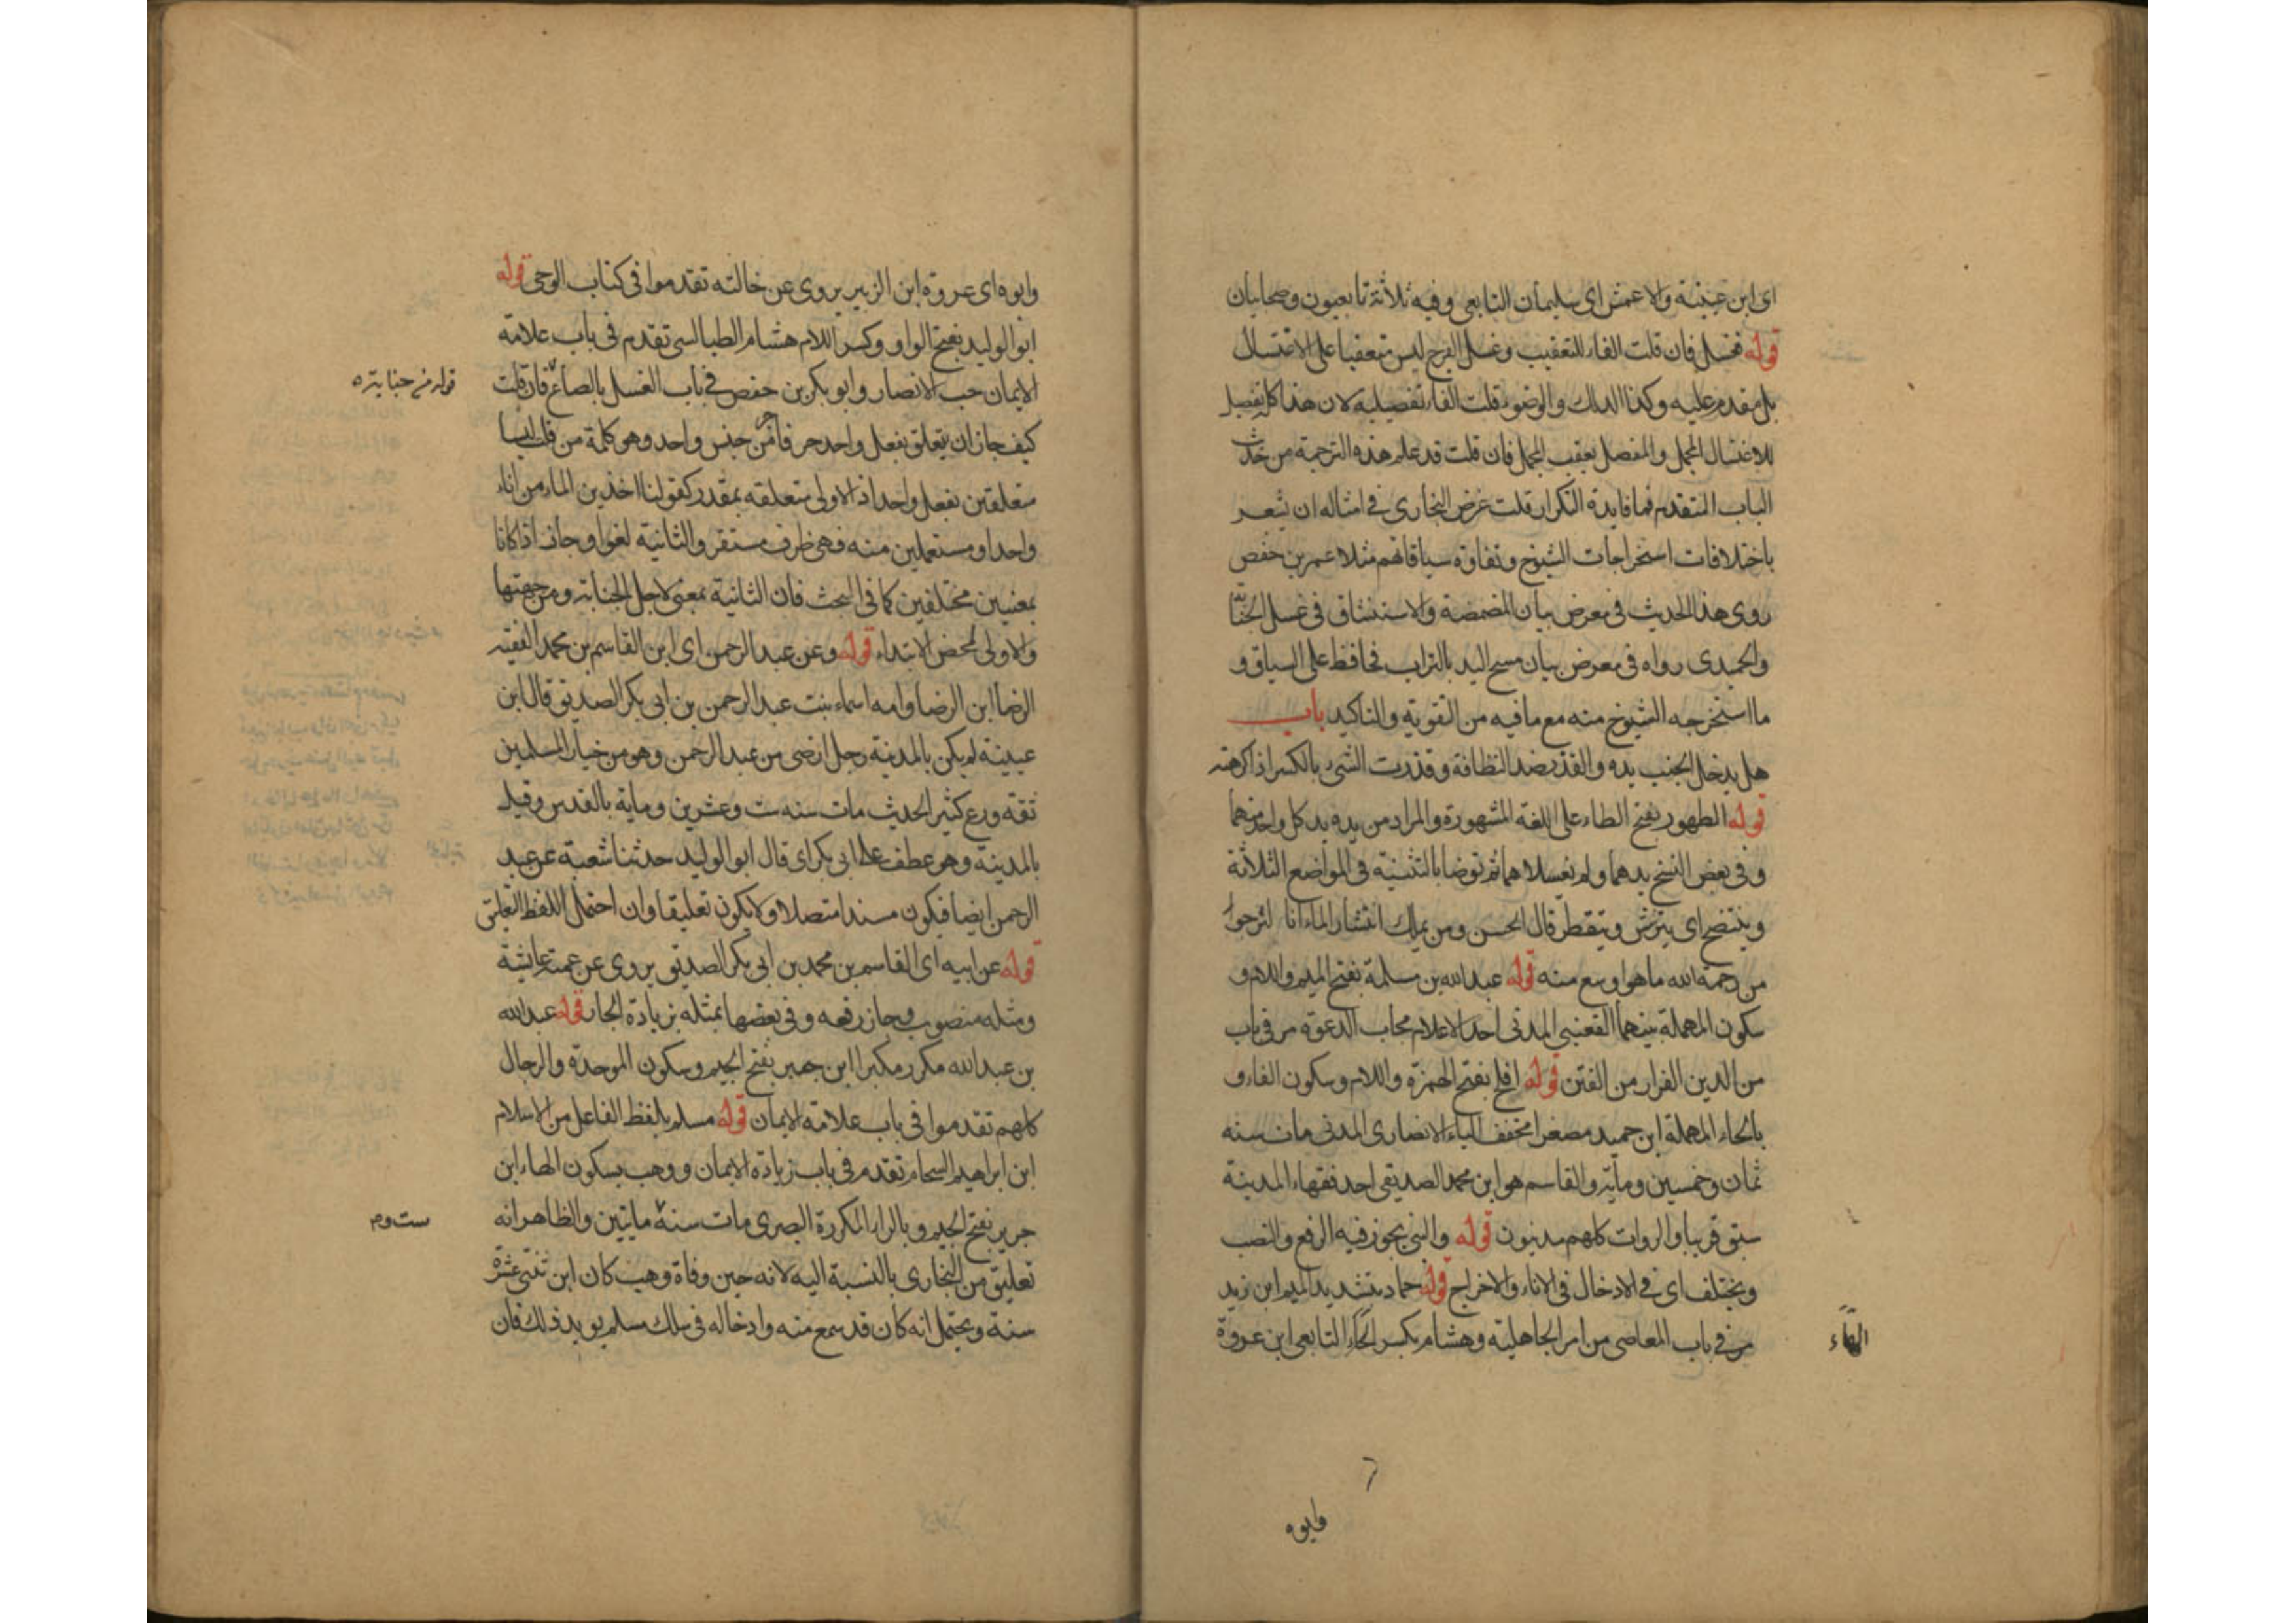 اى ابن عيينة والاعمش اى سليمان التابعى وفيه ثلاثة تابعيون وصحابيان
قوله فغسل فان قلت الفاء للتعقيب وغسل الفرج ليس متعقبا على الاغتسال
بل مقدم عليه وكذا الدلك والوضوء قلت الفاء تفصيلية لان هذا كله تفصيل
للاغتسال المجمل والمفصل يعقب المجمل فان قلت قد علم هذه الترجمة من حديث
الباب المتقدم فما فايدة التكرار قلت غرض البخارى فى امثاله ان يشعر
باختلافات استخراجات الشيوخ وتفاوة سياقاتهم مثلا عمر بن حفص
روى هذا الحديث فى معرض بيان المضمضة والاستنشاق فى غسل الجنابة
والحميدى رواه فى معرض بيان مسح اليد بالتراب فحافظ على السياق و
ما استخرجه الشيوخ منه مع ما فيه من التقوية والتاكيد باب
هل يدخل الجنب يده والقذر ضد النظافة وقذرت الشىء بالكسر اذا كرهته
قوله الطهور بفتح الطاء على اللغة المشهورة والمراد من يده يد كل واحد منهما
وفى بعض النسخ يدهما ولم يغسلاهما ثم توضا بالتثنية فى المواضع الثلاثة
وينتضح اى يترشش ويتقطر قال الحسن ومن يملك انتشار الماء انا لنرجوا
من رحمة الله ما هو اوسع منه قوله عبد الله بن مسلمة بفتح الميم واللام و
سكون المهملة بينهما القعنبى المدنى احد الاعلام مجاب الدعوة مر فى باب
من الدين الفرار من الفتن قوله افلح بفتح الهمزة واللام وسكون الفاء و
بالحاء المهملة ابن حميد مصغرا مخفف الياء الانصارى المدنى مات سنه
ثمان وخمسين ومائة والقاسم هو ابن محمد الصديقى احد فقهاء المدينة
سبق قريبا والروات كلهم مدنيون قوله والنبى يجوز فيه الرفع والنصب
ويختلف اى فى الادخال فى الاناء والاخراج قوله حماد بتشديد الميم ابن زيد
مر فى باب المعاصى من امر الجاهلية وهشام بكسر التابعى ابن عروة
الهاء
وابوه
وابوه اى عروة ابن الزبير يروى عن خالته تقدموا فى كتاب الوحى قوله
ابو الوليد بفتح الواو وكسر اللام هشام الطيالسى تقدم فى باب علامة
الايمان حب الانصار وابو بكر بن حفص فى باب الغسل بالصاع فان قلت
قوله من جنابته
كيف جاز ان يتعلق بفعل واحد حرفا جر من جنس واحد وهو كلمة من قلت ليسا
متعلقين بفعل واحد اذ الاولى متعلقه بمقدر كقولنا اخذين الماء من اناء
واحد او مستعملين منه فهى ظرف مستقر والثانية لغو او جاز اذا كانا
بمعنيين مختلفين كما فى البحث فان الثانية بمعنى لاجل الجنابة ومن جهتها
والاولى لمحض الابتداء قوله وعن عبد الرحمن اى ابن القاسم بن محمد الفقيه
الرضا ابن الرضا وامه اسماء بنت عبد الرحمن بن ابى بكر الصديق قال ابن
عيينة لم يكن بالمدينة رجل ارضى من عبد الرحمن وهو من خيار المسلمين
ثقة ورع كثير الحديث مات سنه ست وعشرين وماية بالقدس وقيل
بالمدينة وهو عطف على ابى بكر اى قال ابو الوليد حدثنا شعبة عن عبد
الرحمن ايضا فيكون مسندا متصلا ولا يكون تعليقا وان احتمل اللفظ التعليق
قوله عن ابيه اى القاسم بن محمد بن ابى بكر الصديق يروى عن عمته عايشة
ومثله منصوب وجاز رفعه وفى بعضها بمثله بزيادة الجار قوله عبد الله
بن عبد الله مكرر مكبرا ابن جبر بفتح الجيم وسكون الموحدة والرجال
كلهم تقدموا فى باب علامة الايمان قوله مسلم بلفظ الفاعل من الاسلام
ابن ابراهيم السحام تقدم فى باب زيادة الايمان ووهب بسكون الهاء ابن
جرير بفتح الجيم وبالراء المكررة البصرى مات سنة مايتين والظاهر انه
ست و
تعليق من البخارى بالنسبة اليه لانه حين وفاة وهب كان ابن ثنتى عشرة
سنة ويحتمل انه كان قد سمع منه وادخاله فى سلك مسلم يويد ذلك فان